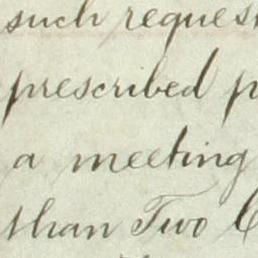 such request
prescribed p
a meeting
than Two C